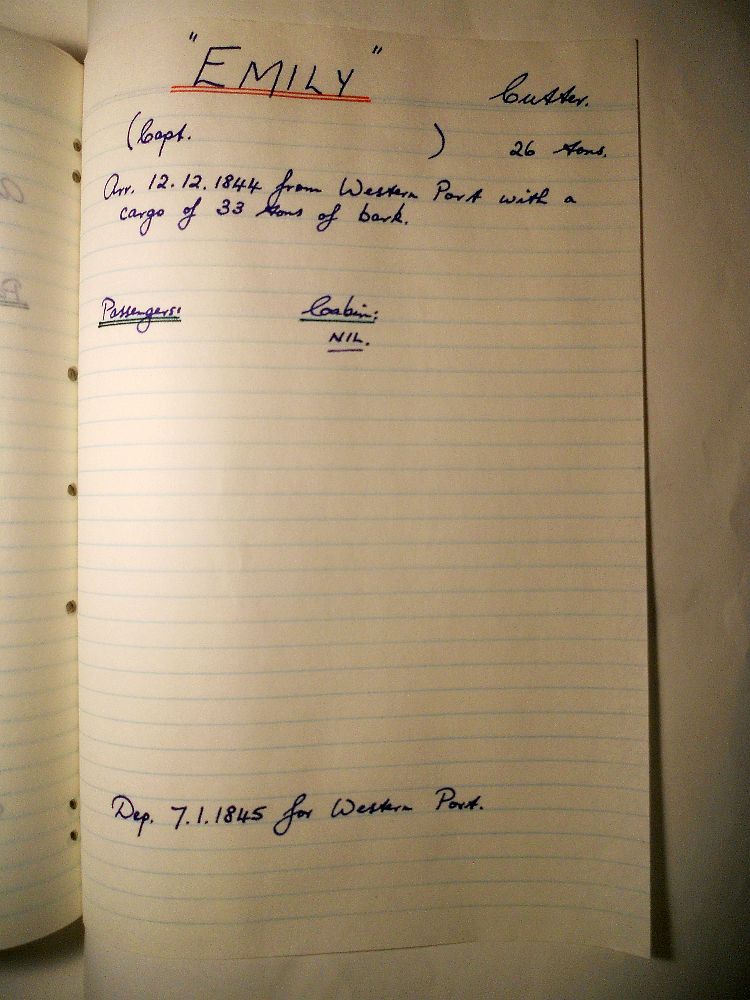 "EMILY"
Cutter.
(Capt. )
26 tons.
Arr. 12.12.1844 from Western Port with a
cargo of 33 tons of bark.
Passengers: Cabin:
NIL.
Dep. 7.1.1845 for Western Port.